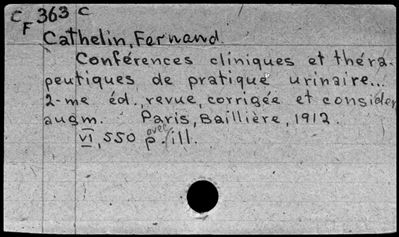 C 363 c
F
Cathelin, Fernand
Conférences cliniques et théra-
peutiques de pratique urinaire...
2-me éd., revue, corrigée et consider
augm. Paris, Baillière, 1912.
VI, 550 p. avec ill.